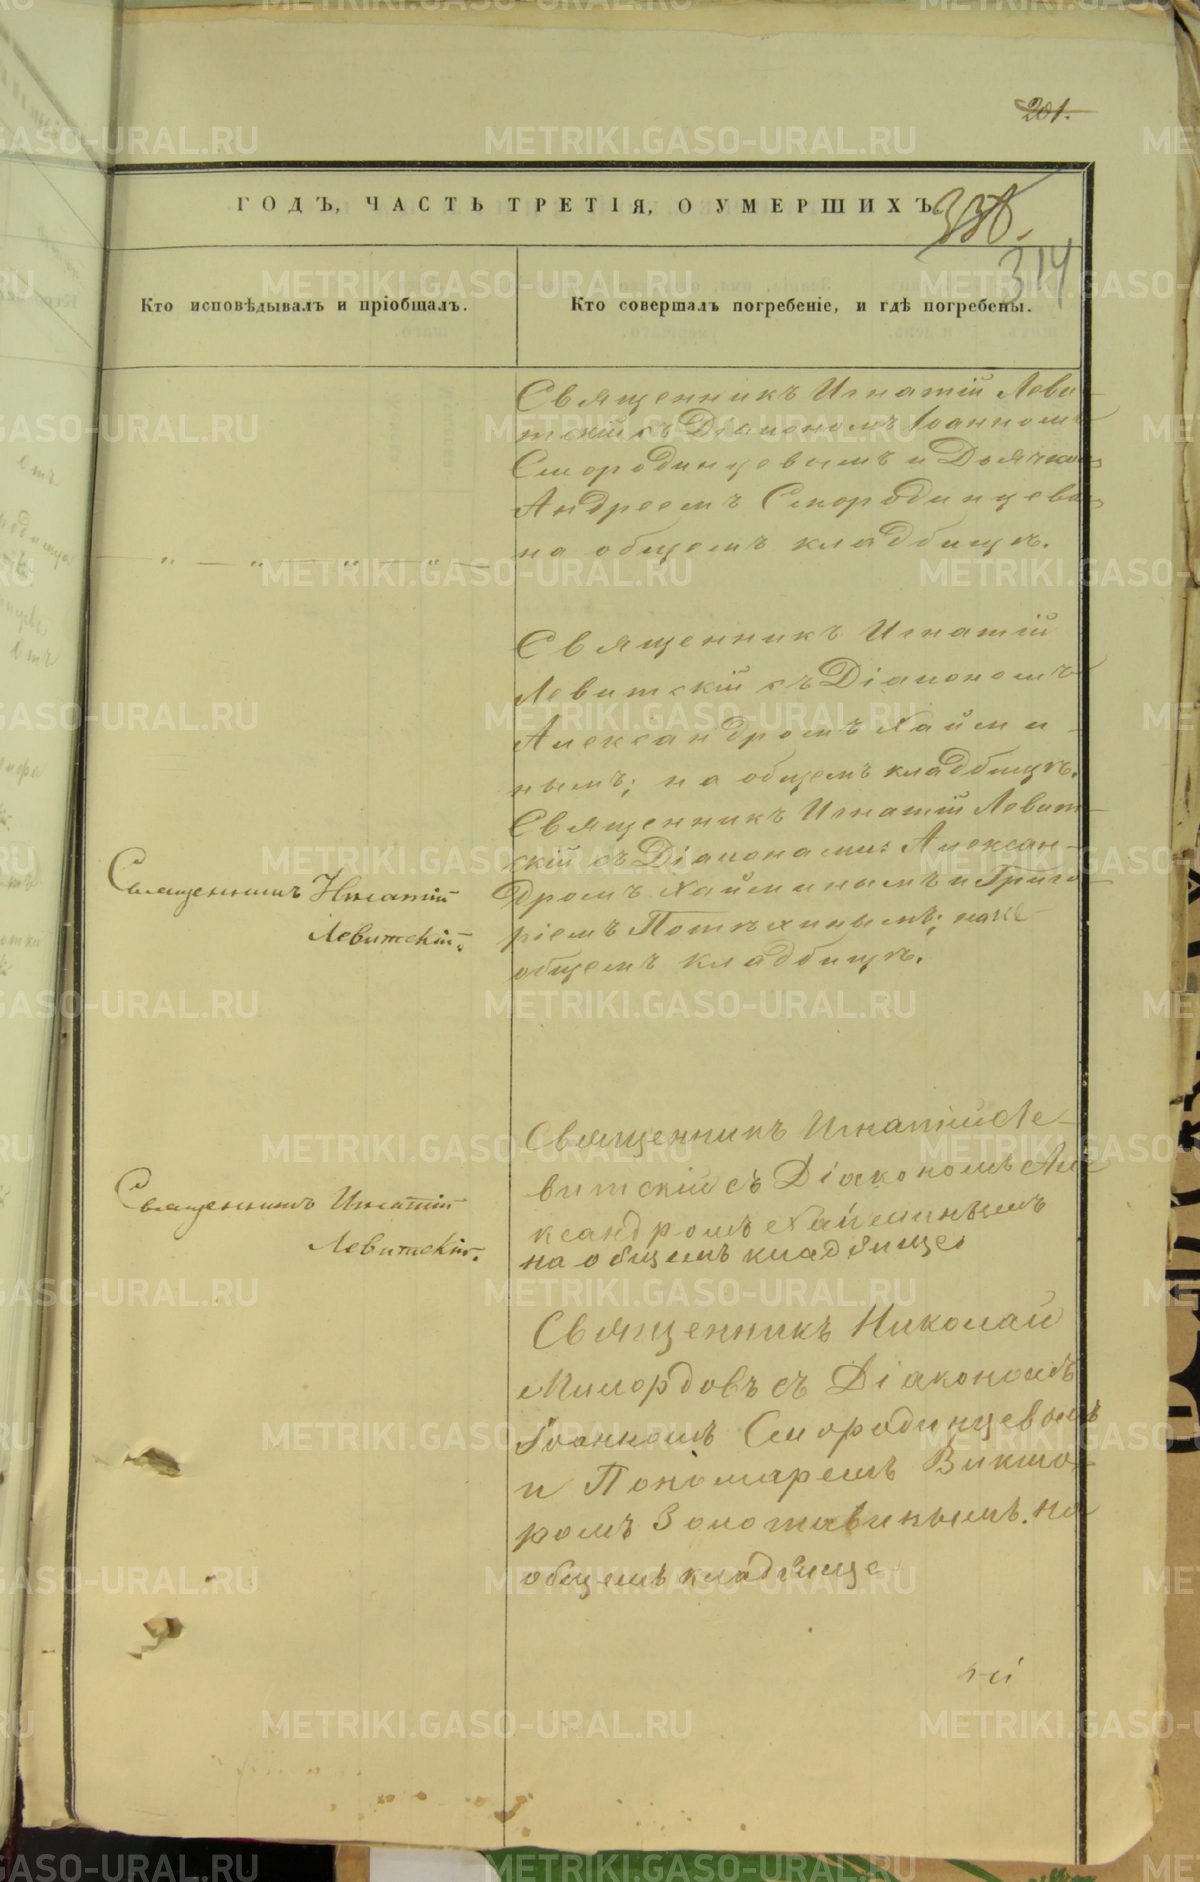 201.
ГОДЪ, ЧАСТЬ ТРЕТІЯ, О УМЕРШИХЪ
314
Кто исповѣдывалъ и пріобщалъ.
Кто совершалъ погребеніе, и гдѣ погребены.
Священникъ Игнатій Леви-
тскій съ Діакономъ Іоанномъ
Смородинцевымъ и Дьячком
Андреемъ Смородинцевы
на общемъ кладбищѣ.
— " — " — " — " —
Священникъ Игнатій
Левитскій съ Діакономъ
Александромъ Хайми-
нымъ; на общемъ кладбищѣ.
Священникъ Игнатій Левит-
скій съ Діаконами: Алексан-
дромъ Хайминымъ и Григо-
ріемъ Потѣхинымъ; на
общемъ кладбищѣ.
Священникъ Игнатій
Левитскій.
Священникъ Игнатій Ле-
витскій съ Діакономъ Але
ксандромъ Хайминымъ
на общемъ кладбище
Священникъ Игнатій
Левитскій.
Священникъ Николай
Милордовъ съ Діакономъ
Іоанномъ Смородинцевымъ
и Пономаремъ Викто-
ромъ Золотавинымъ. на
общемъ кладбище
METRIKI.GASO-URAL.RU